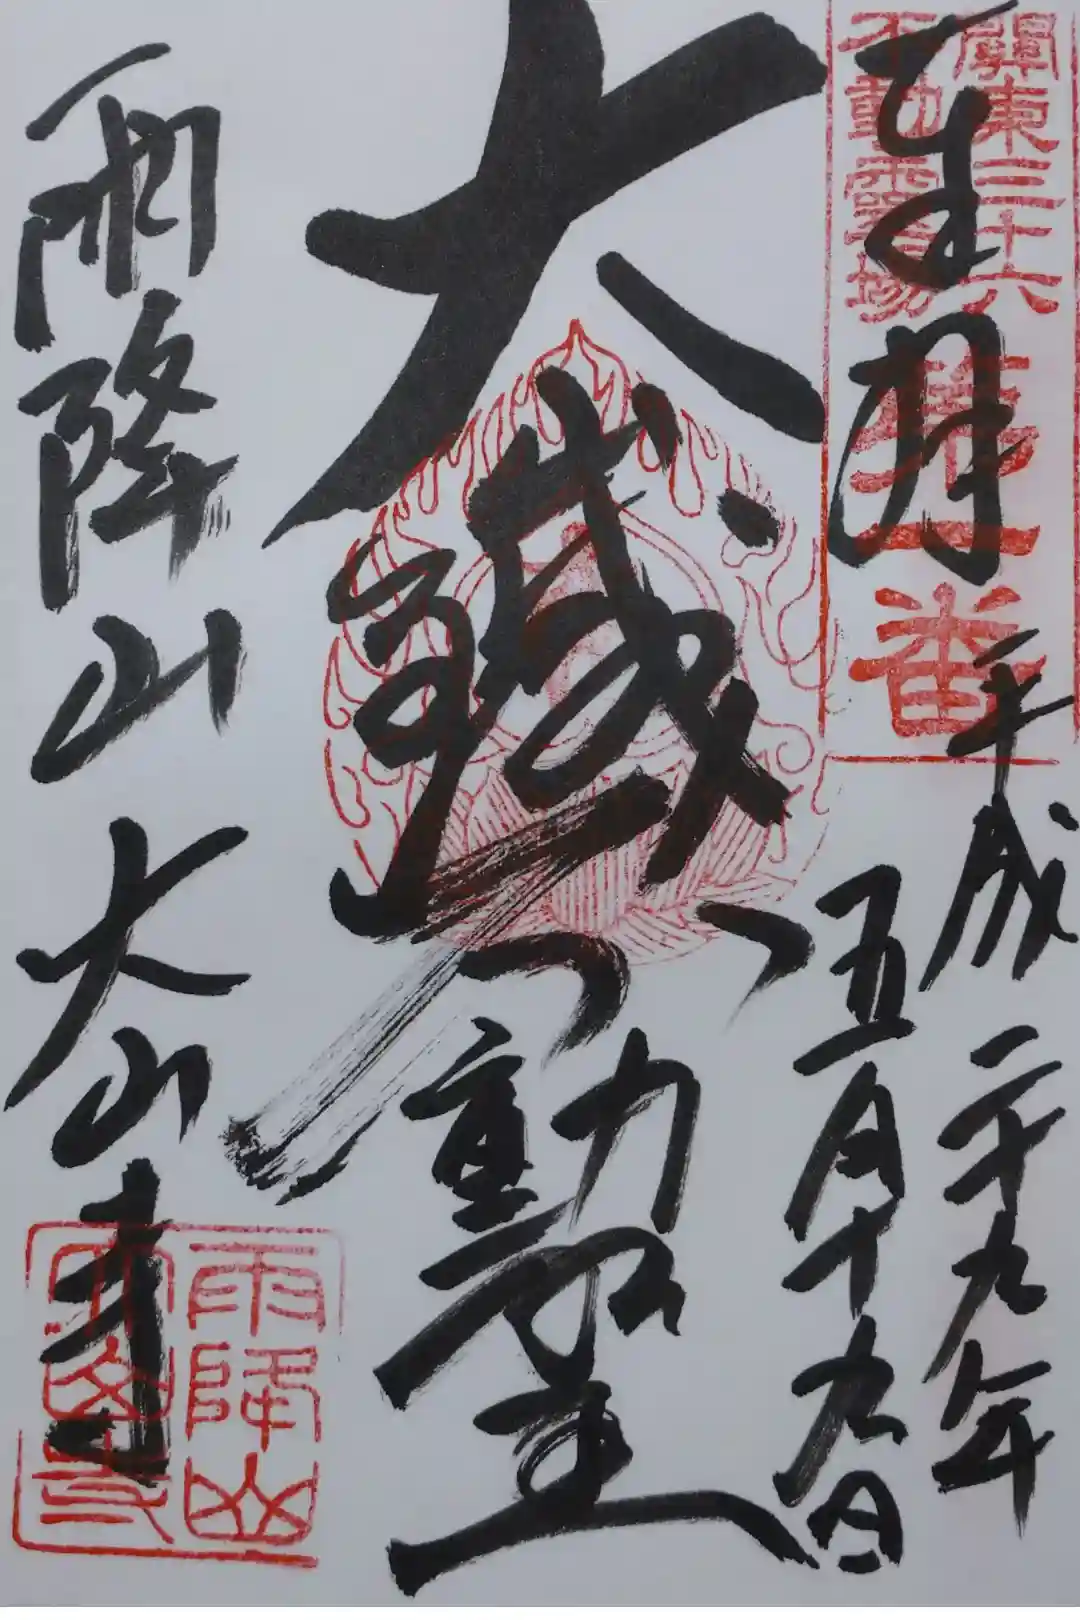 奉拝
關東三十六
不動靈場
第一番
平成二十九年
五月十九日
大鐵不動
雨降山大山寺
雨降山
大山寺